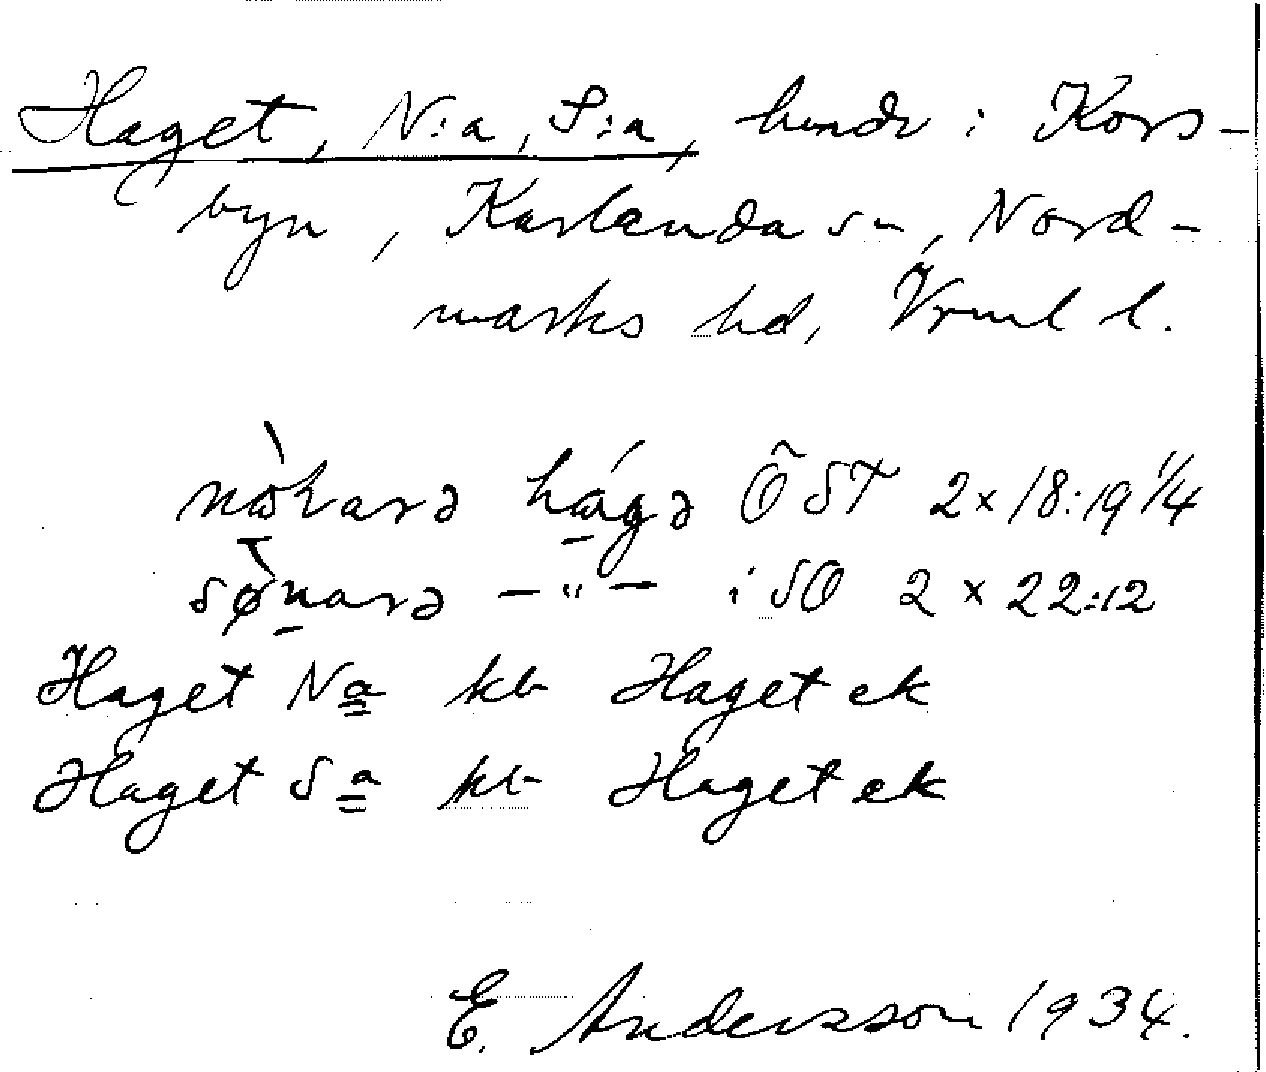 Haget, N:a, S:a, hmdr i Kors-
byn, Karlanda sn, Nord-
marks hd, Vrml l.
nòḷarə há̱gə ÖST 2x18:19 1/4
sø̀ṉarə -"- i SO 2 x 22:12
Haget Na kb Haget ek
Haget Sa kb Haget ek
E. Andersson 1934.